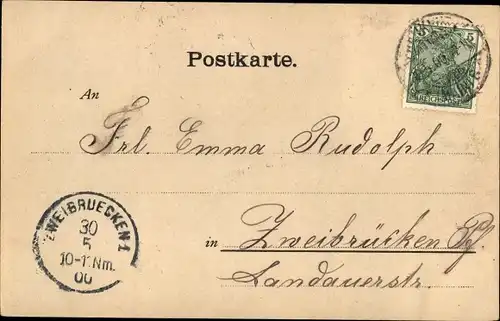 Postkarte.
5 5
REICHSPOST
An
Frl. Emma Rudolph
ZWEIBRUECKEN 1
30
5
10-11 Nm.
00
in Zweibrücken Pf.
Landauerstr.